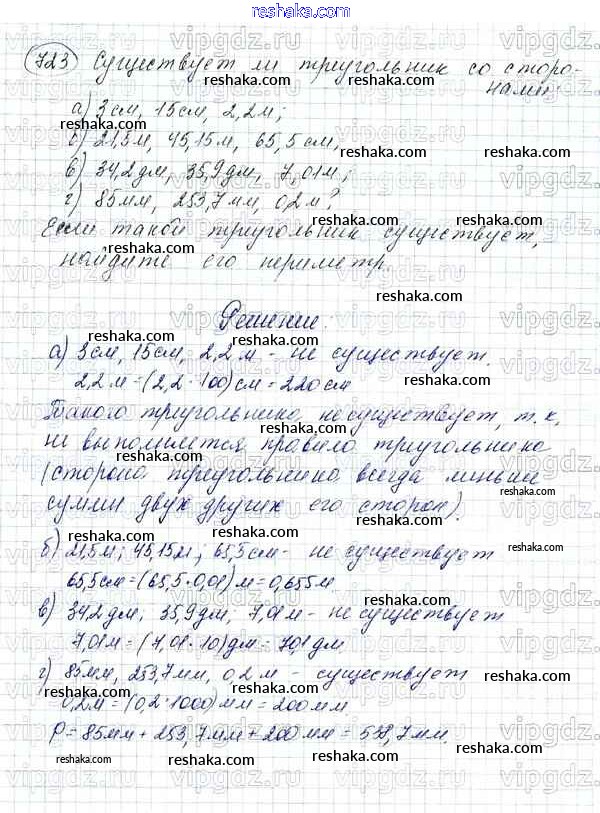 reshaka.com
723 Существует ли треугольник со сторо-
нами:
а) 3см, 15см, 2,2м;
б) 21,5м, 45,15м, 65,5см,
в) 34,2дм, 35,9дм, 7,01м;
г) 85мм, 253,7мм, 0,2м?
Если такой треугольник существует,
найдите его периметр.
Решение.
а) 3см, 15см, 2,2м - не существует.
2,2м=(2,2·100)см=220см
Такого треугольника не существует, т.к.
не выполняется правило треугольника
(сторона треугольника всегда меньше
суммы двух других его сторон).
б) 21,5м; 45,15м; 65,5см - не существует
65,5см=(65,5·0,01)м=0,655м
в) 34,2дм; 35,9дм, 7,01м - не существует
7,01м=(7,01·10)дм=70,1дм
г) 85мм, 253,7мм, 0,2м - существует
0,2м=(0,2·1000)мм=200мм
P=85мм+253,7мм+200мм=538,7мм.